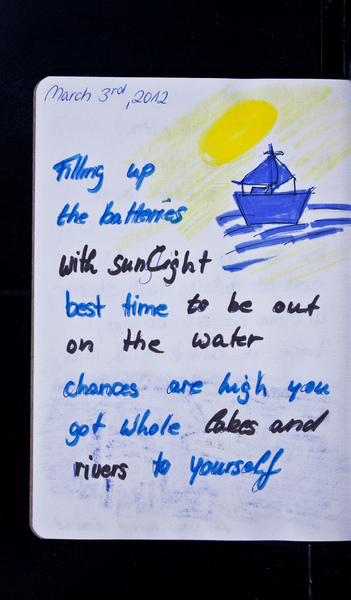 March 3rd, 2012
Filling up
the batteries
with sunlight
best time to be out
on the water
chances are high you
got whole lakes and
rivers to yourself